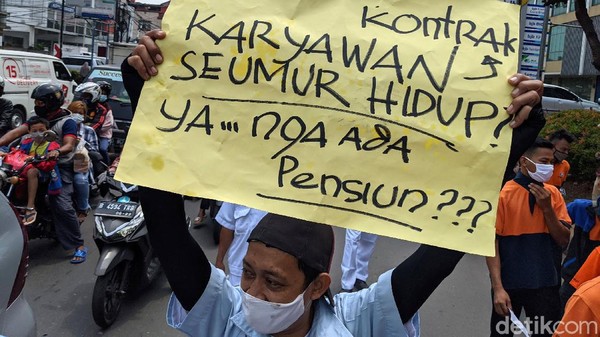 Kontrak
KARYAWAN
SEUMUR HIDUP?
YA... NGA ADA
Pensiun???
15
detikcom